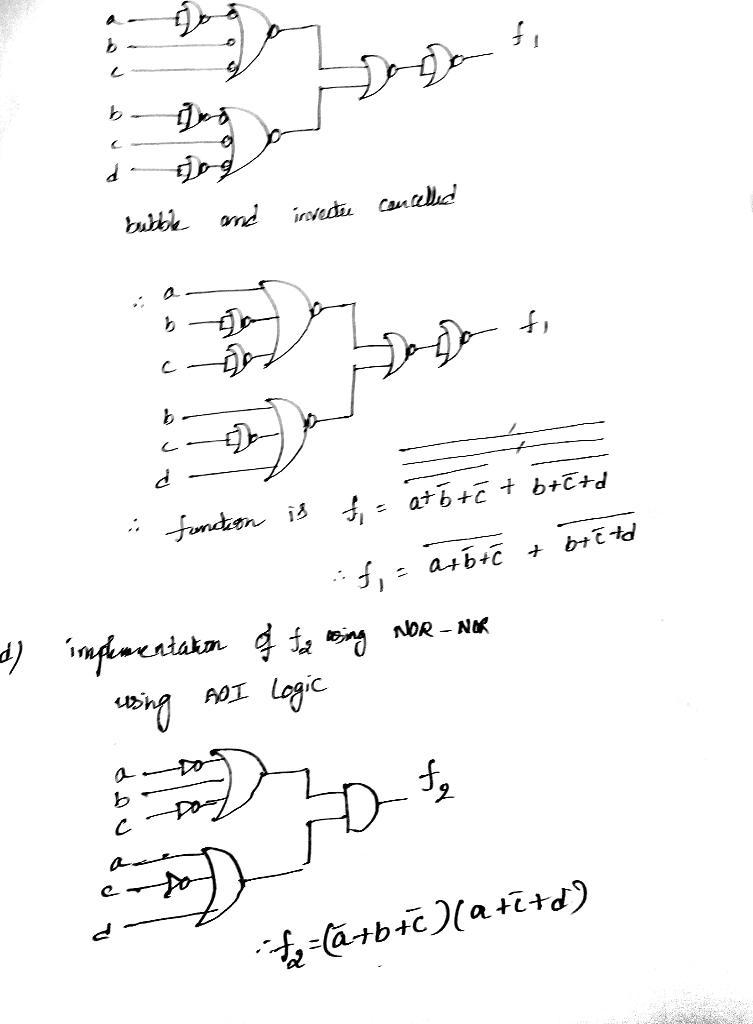 a
b
c
f₁
b
c
d
bubble and inverter cancelled
∴ a
b
c
f₁
b
c
d
∴ function is f₁ = \overline{\overline{\overline{a+b̄+c̄} + \overline{b+c̄+d}}}
∴ f₁ = \overline{a+b̄+c̄} + \overline{b+c̄+d}
d) implementation of f₂ using NOR-NOR
using AOI Logic
a
b
c
f₂
a
c
d
∴ f₂ = (ā+b+c̄)(a+c̄+d)